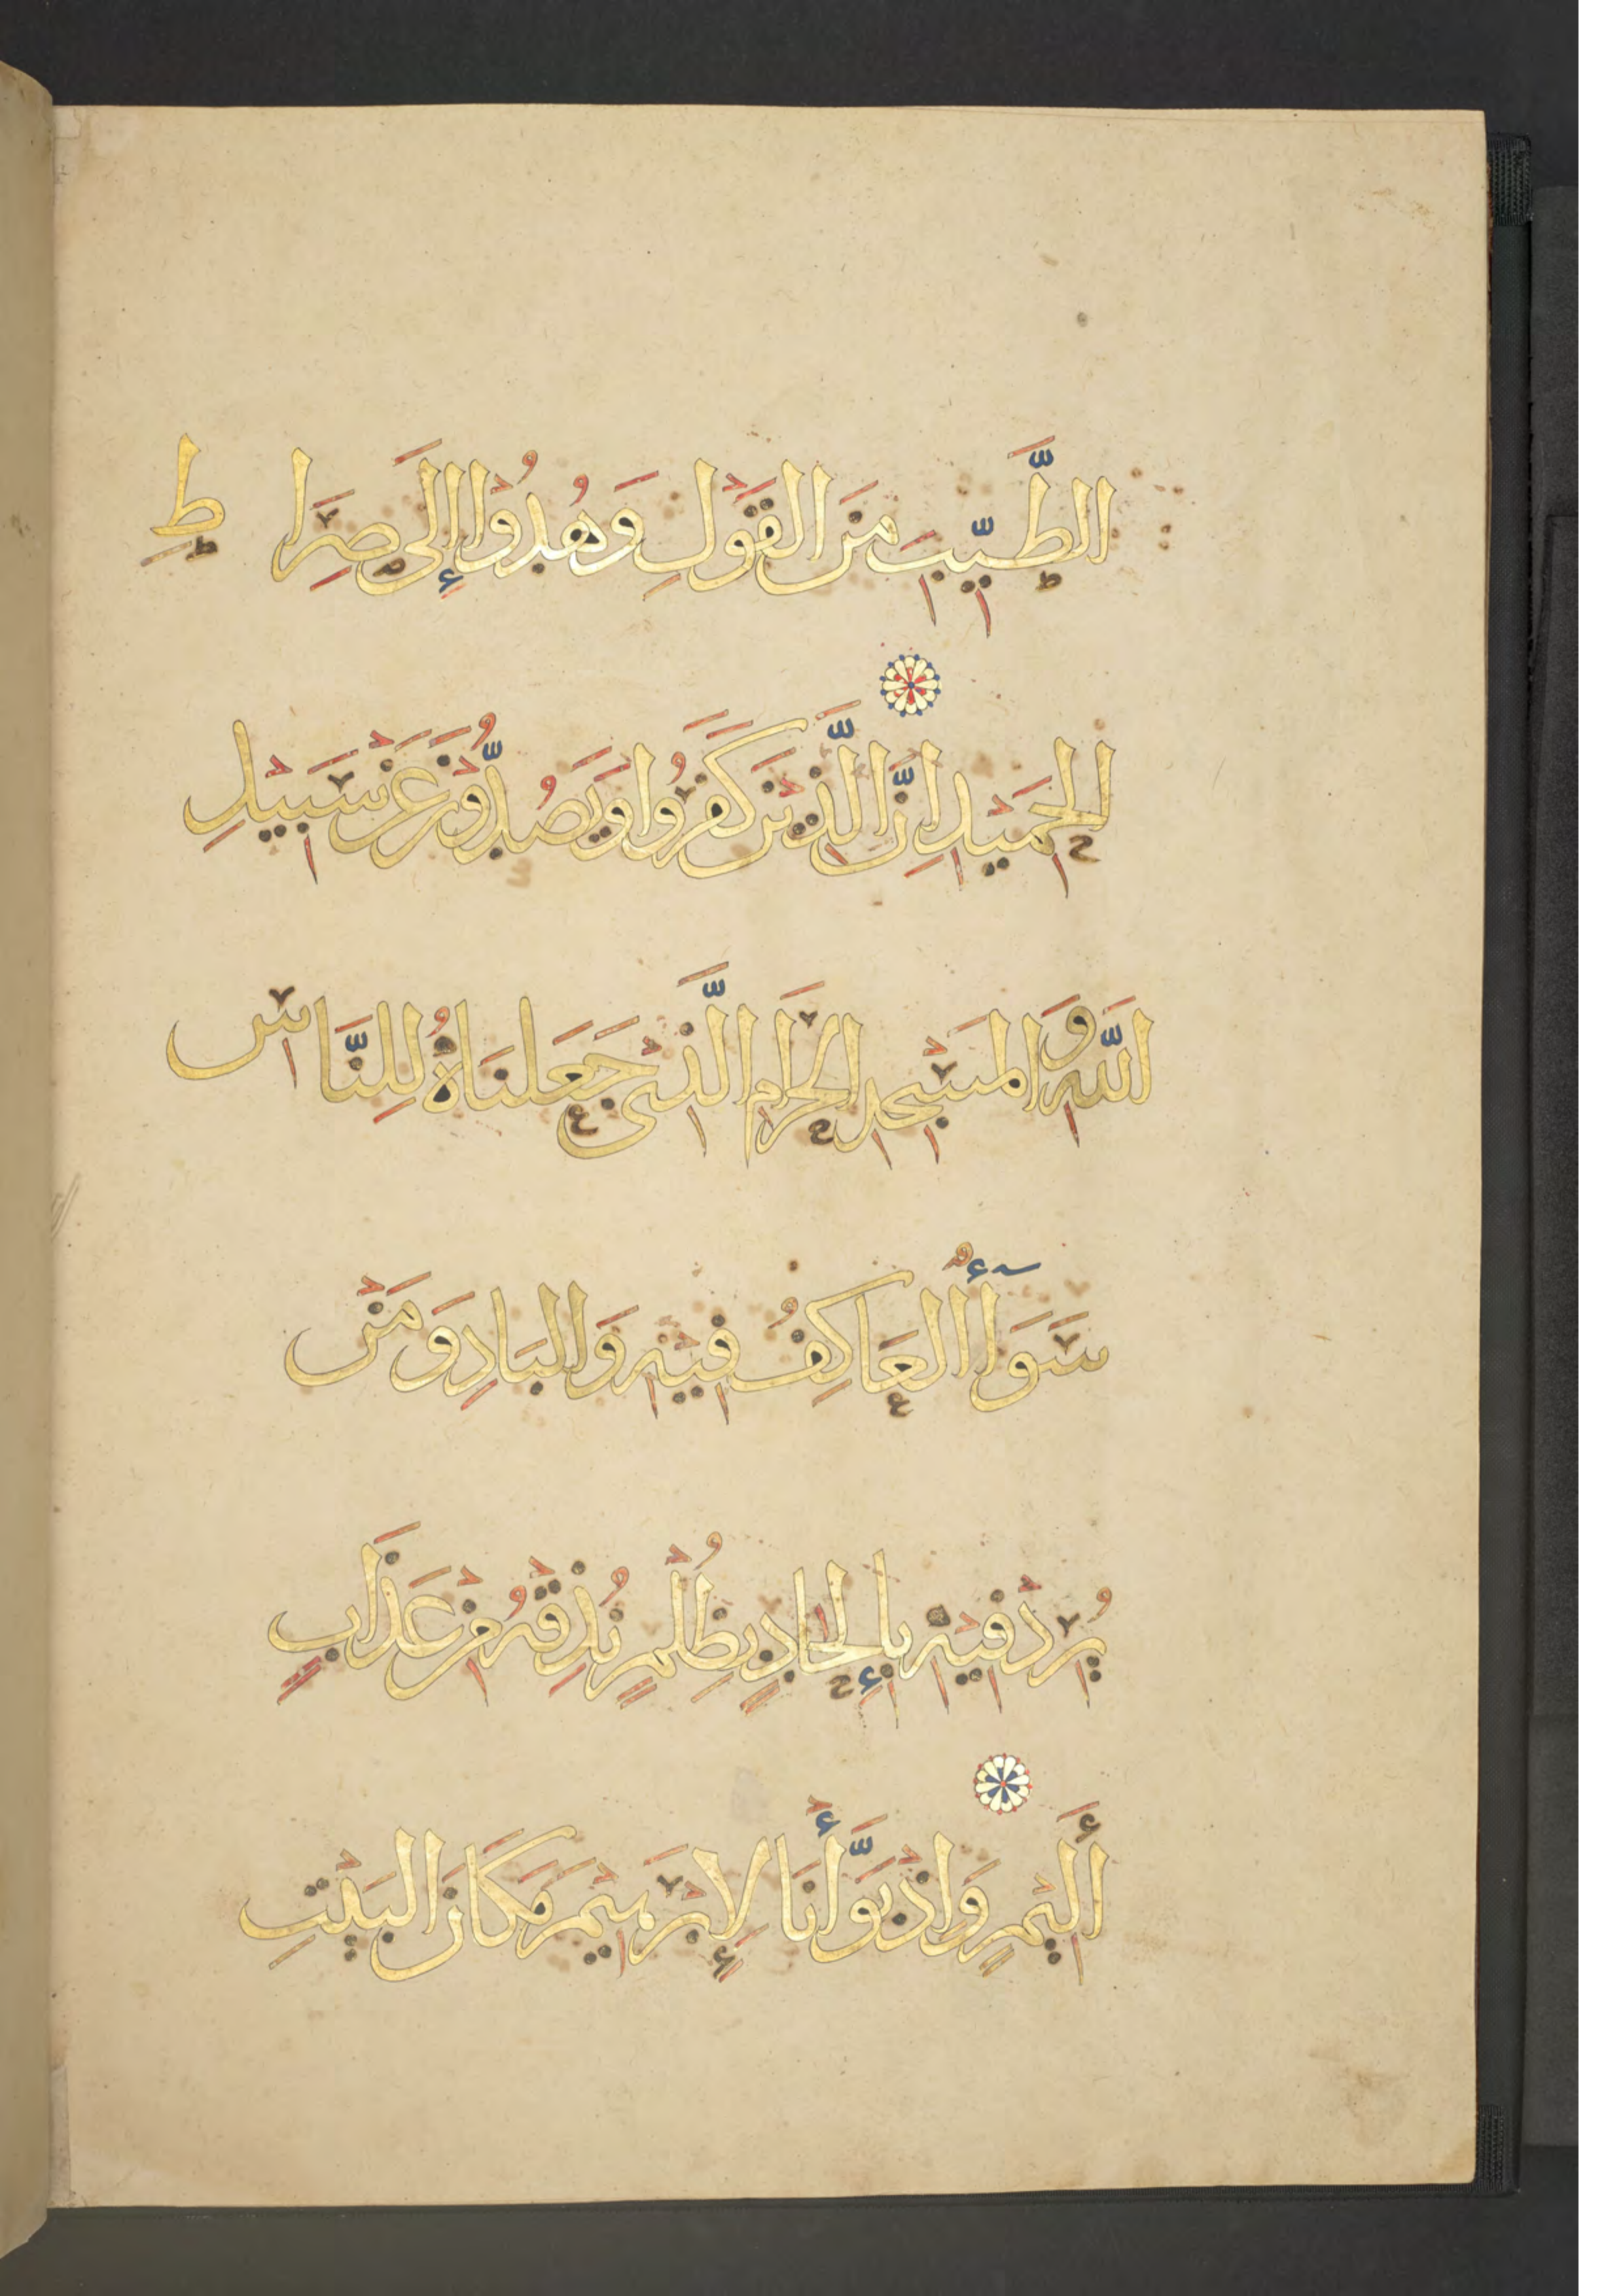 الطَّيِّبِ مِنَ الْقَوْلِ وَهُدُوْا إِلَى صِرَاطِ
الْحَمِيْدِ اِنَّ الَّذِيْنَ كَفَرُوا وَيَصُدُّوْنَ عَنْ سَبِيْلِ
اللَّهِ وَالْمَسْجِدِ الْحَرَامِ الَّذِيْ جَعَلنَاهُ لِلنَّاسِ
سَوَآءً الْعَاكِفُ فِيْهِ وَالْبَادِ وَمَنْ
يُرِدْ فِيْهِ بِإِلْحَادٍ بِظُلْمٍ نُذِقْهُ مِنْ عَذَابٍ
أَلِيْمٍ وَاِذْ بَوَّأْنَا لِإِبْرَهِيْمَ مَكَانَ الْبَيْتِ